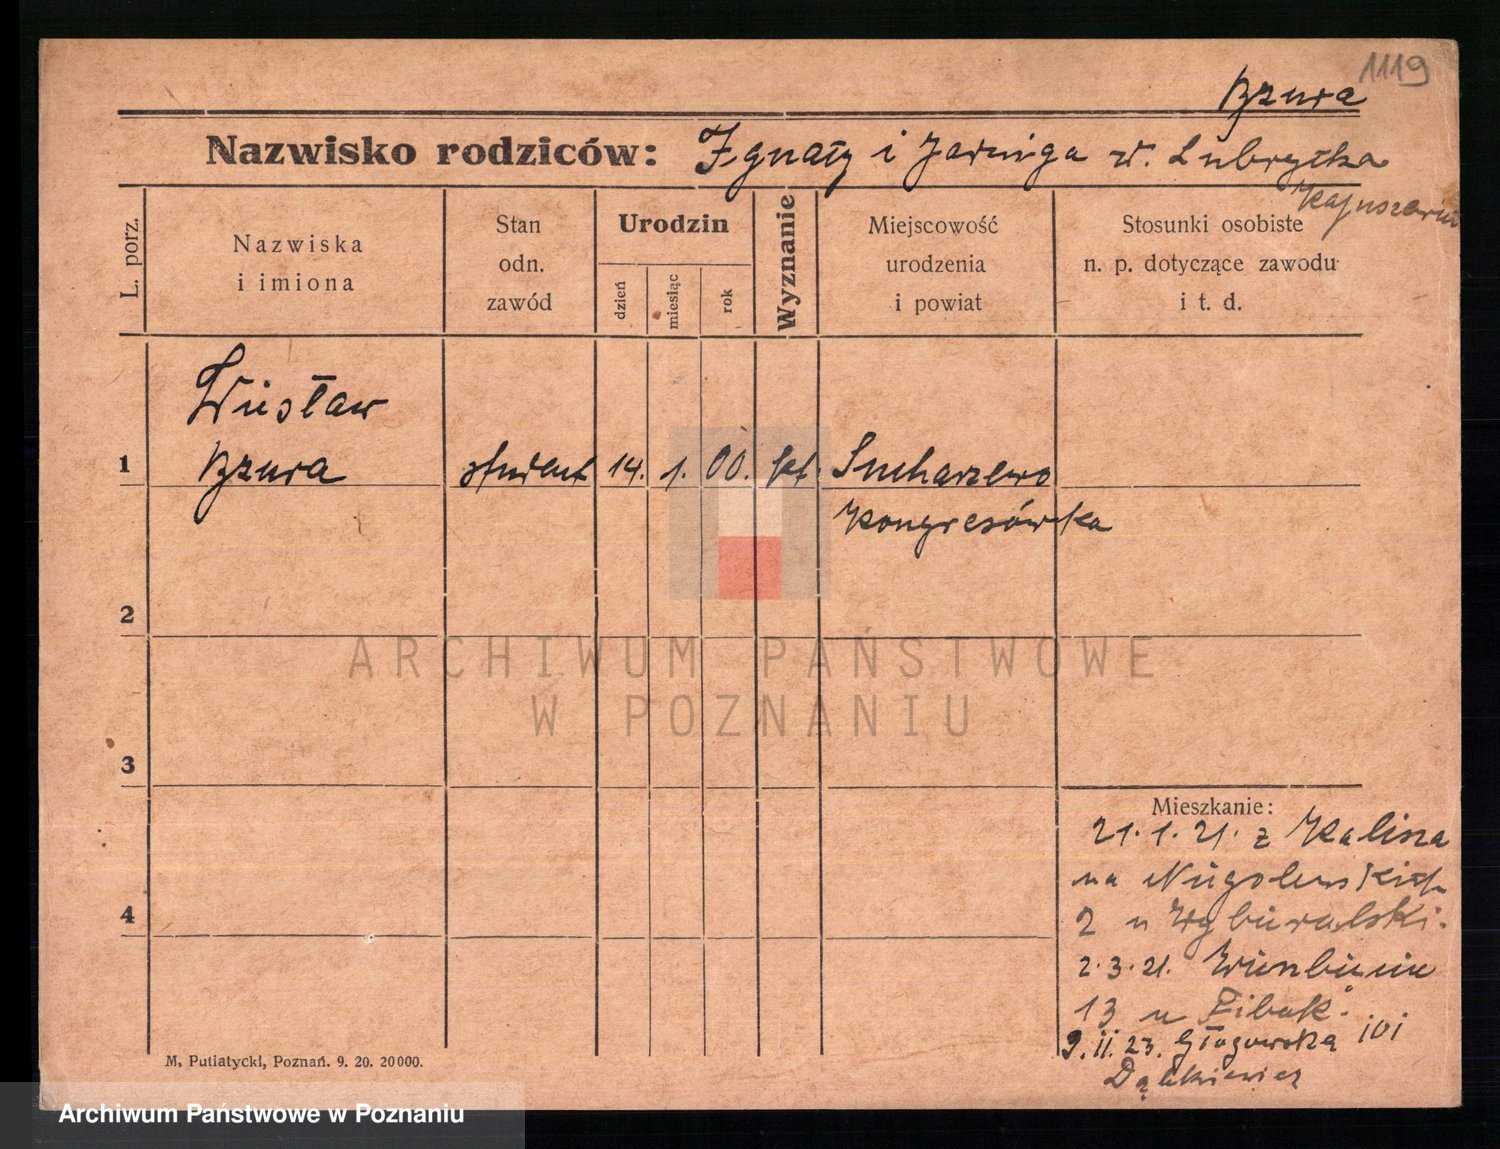 1119
Bzura
Nazwisko rodziców: Ignacy i Jadwiga z d. Lubryczka
L. porz.
Nazwiska
i imiona
Stan
odn.
zawód
Urodzin
dzień
miesiąc
rok
Wyznanie
Miejscowość
urodzenia
i powiat
Stosunki osobiste
n. p. dotyczące zawodu
i t. d.
Wiesław
1 Bzura student 14. 1. 00. kat. Sucharzewo
Kongresówka
2
3
4
Mieszkanie:
21. 1. 21. z Kalisza
na
2 u
2. 3. 21.
13 u
9. II. 23. Głogowska 101
M. Putiatycki, Poznań. 9. 20. 20000.
ARCHIWUM PAŃSTWOWE
W POZNANIU
Archiwum Państwowe w Poznaniu